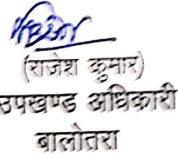 (राजेश कुमार)
उपखण्ड अधिकारी
बालोतरा